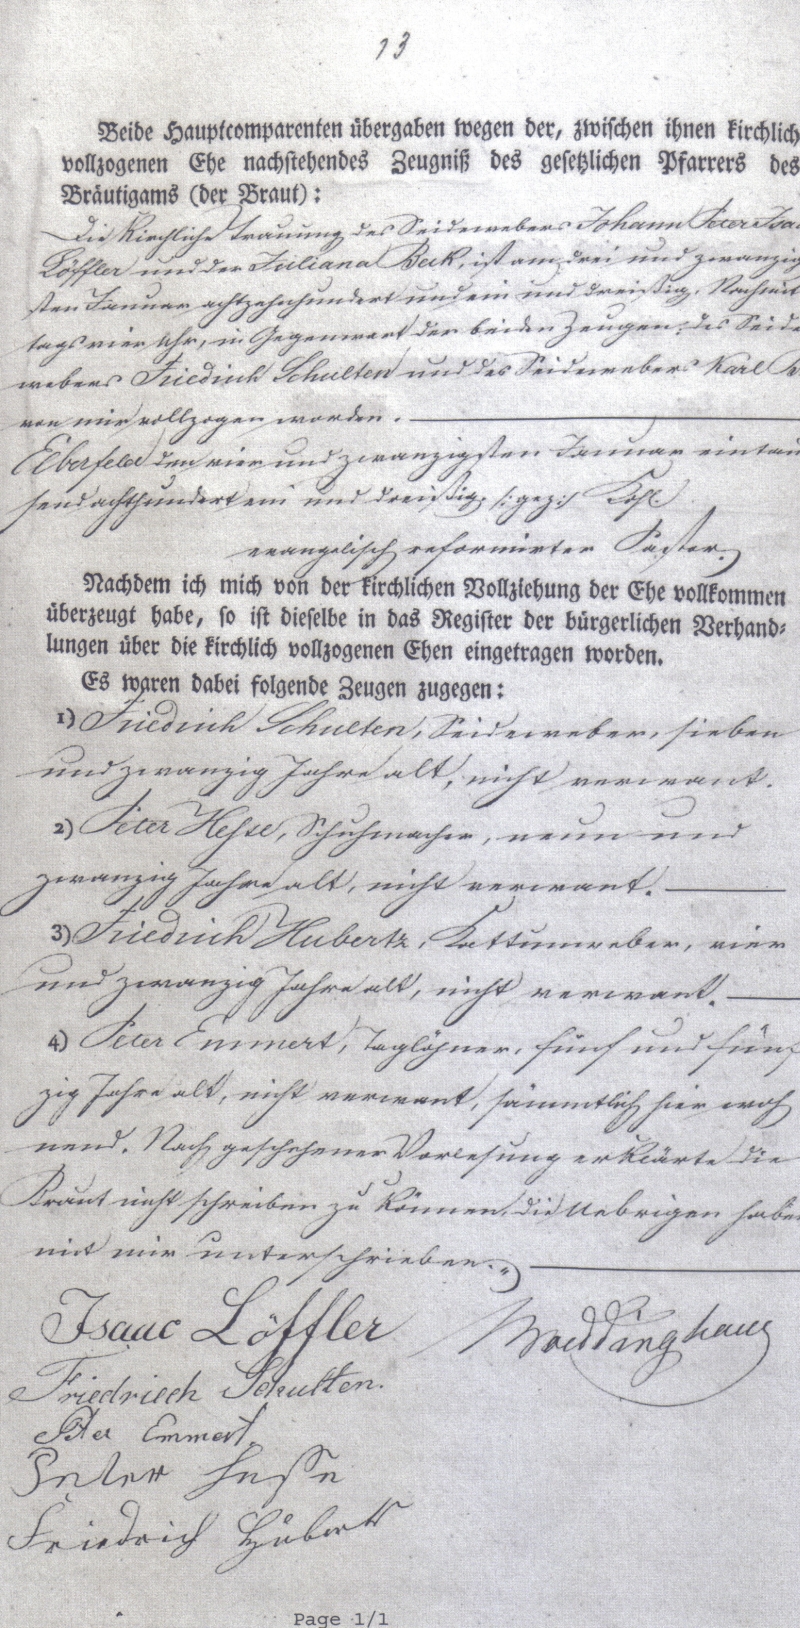 13
Beide Hauptcomparenten übergaben wegen der, zwischen ihnen kirchlich
vollzogenen Ehe nachstehendes Zeugniß des gesetzlichen Pfarrers des
Bräutigams (der Braut):
Die Kirchliche Trauung des Seidewebers Johann Peter Isaa
Löffler und der Juliana Beck, ist am drei und zwanzig
sten Januar achtzehnhundert und ein und dreißig, Nachmit
tags vier Uhr, in Gegenwart der beiden Zeugen: des Seide
webers Friedrich Schulten und des Seidewebers Karl
von mir vollzogen worden.
Elberfeld den vier und zwanzigsten Januar eintau
sendachthundert ein und dreißig. /:gez:/ Kohl
evangelisch reformirter Pastor.
Nachdem ich mich von der kirchlichen Vollziehung der Ehe vollkommen
überzeugt habe, so ist dieselbe in das Register der bürgerlichen Verhand=
lungen über die kirchlich vollzogenen Ehen eingetragen worden.
Es waren dabei folgende Zeugen zugegen:
1) Friedrich Schulten, Seideweber, sieben
und zwanzig Jahre alt, nicht verwant.
2) Peter Hesse, Schuhmacher, neun und
zwanzig Jahre alt, nicht verwant.
3) Friedrich Hubertz, Kattunweber, vier
und zwanzig Jahre alt, nicht verwant.
4) Peter Emmert, Taglöhner, fünf und fünf
zig Jahre alt, nicht verwant, sämmtlich hier woh
nend. Nach geschehener Vorlesung erklärte die
Braut nicht schreiben zu können, die Uebrigen haben
mit mir unterschrieben.
Isaac Löffler Boeddinghaus
Friedriech Schulten.
Peter Emmert
Peter Hesse
Friedrich Hübertz
Page 1/1